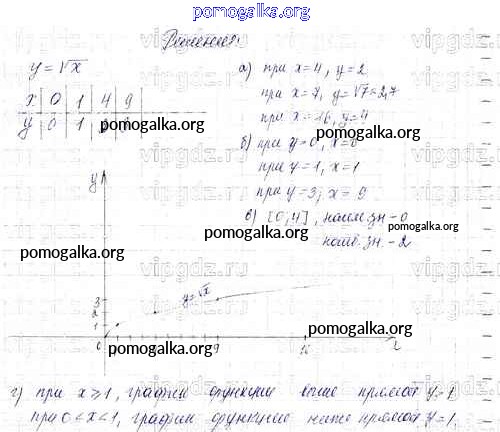 pomogalka.org
Решение
y=√x
x | 0 | 1 | 4 | 9
y | 0 | 1
pomogalka.org
а) при x=4, y=2
при x=7, y=√7≈2,7
при x=16, y=4
pomogalka.org
б) при y=0, x=0
при y=1, x=1
при y=3; x=9
в) [0;4], наим. зн – 0
pomogalka.org
наиб. зн. – 2
pomogalka.org
pomogalka.org
y
3
2
1
y=√x
0
9
16
x
pomogalka.org
pomogalka.org
г) при x≥1, график функции выше прямой y=1
при 0<x<1, график функции ниже прямой y=1
vipgdz.ru